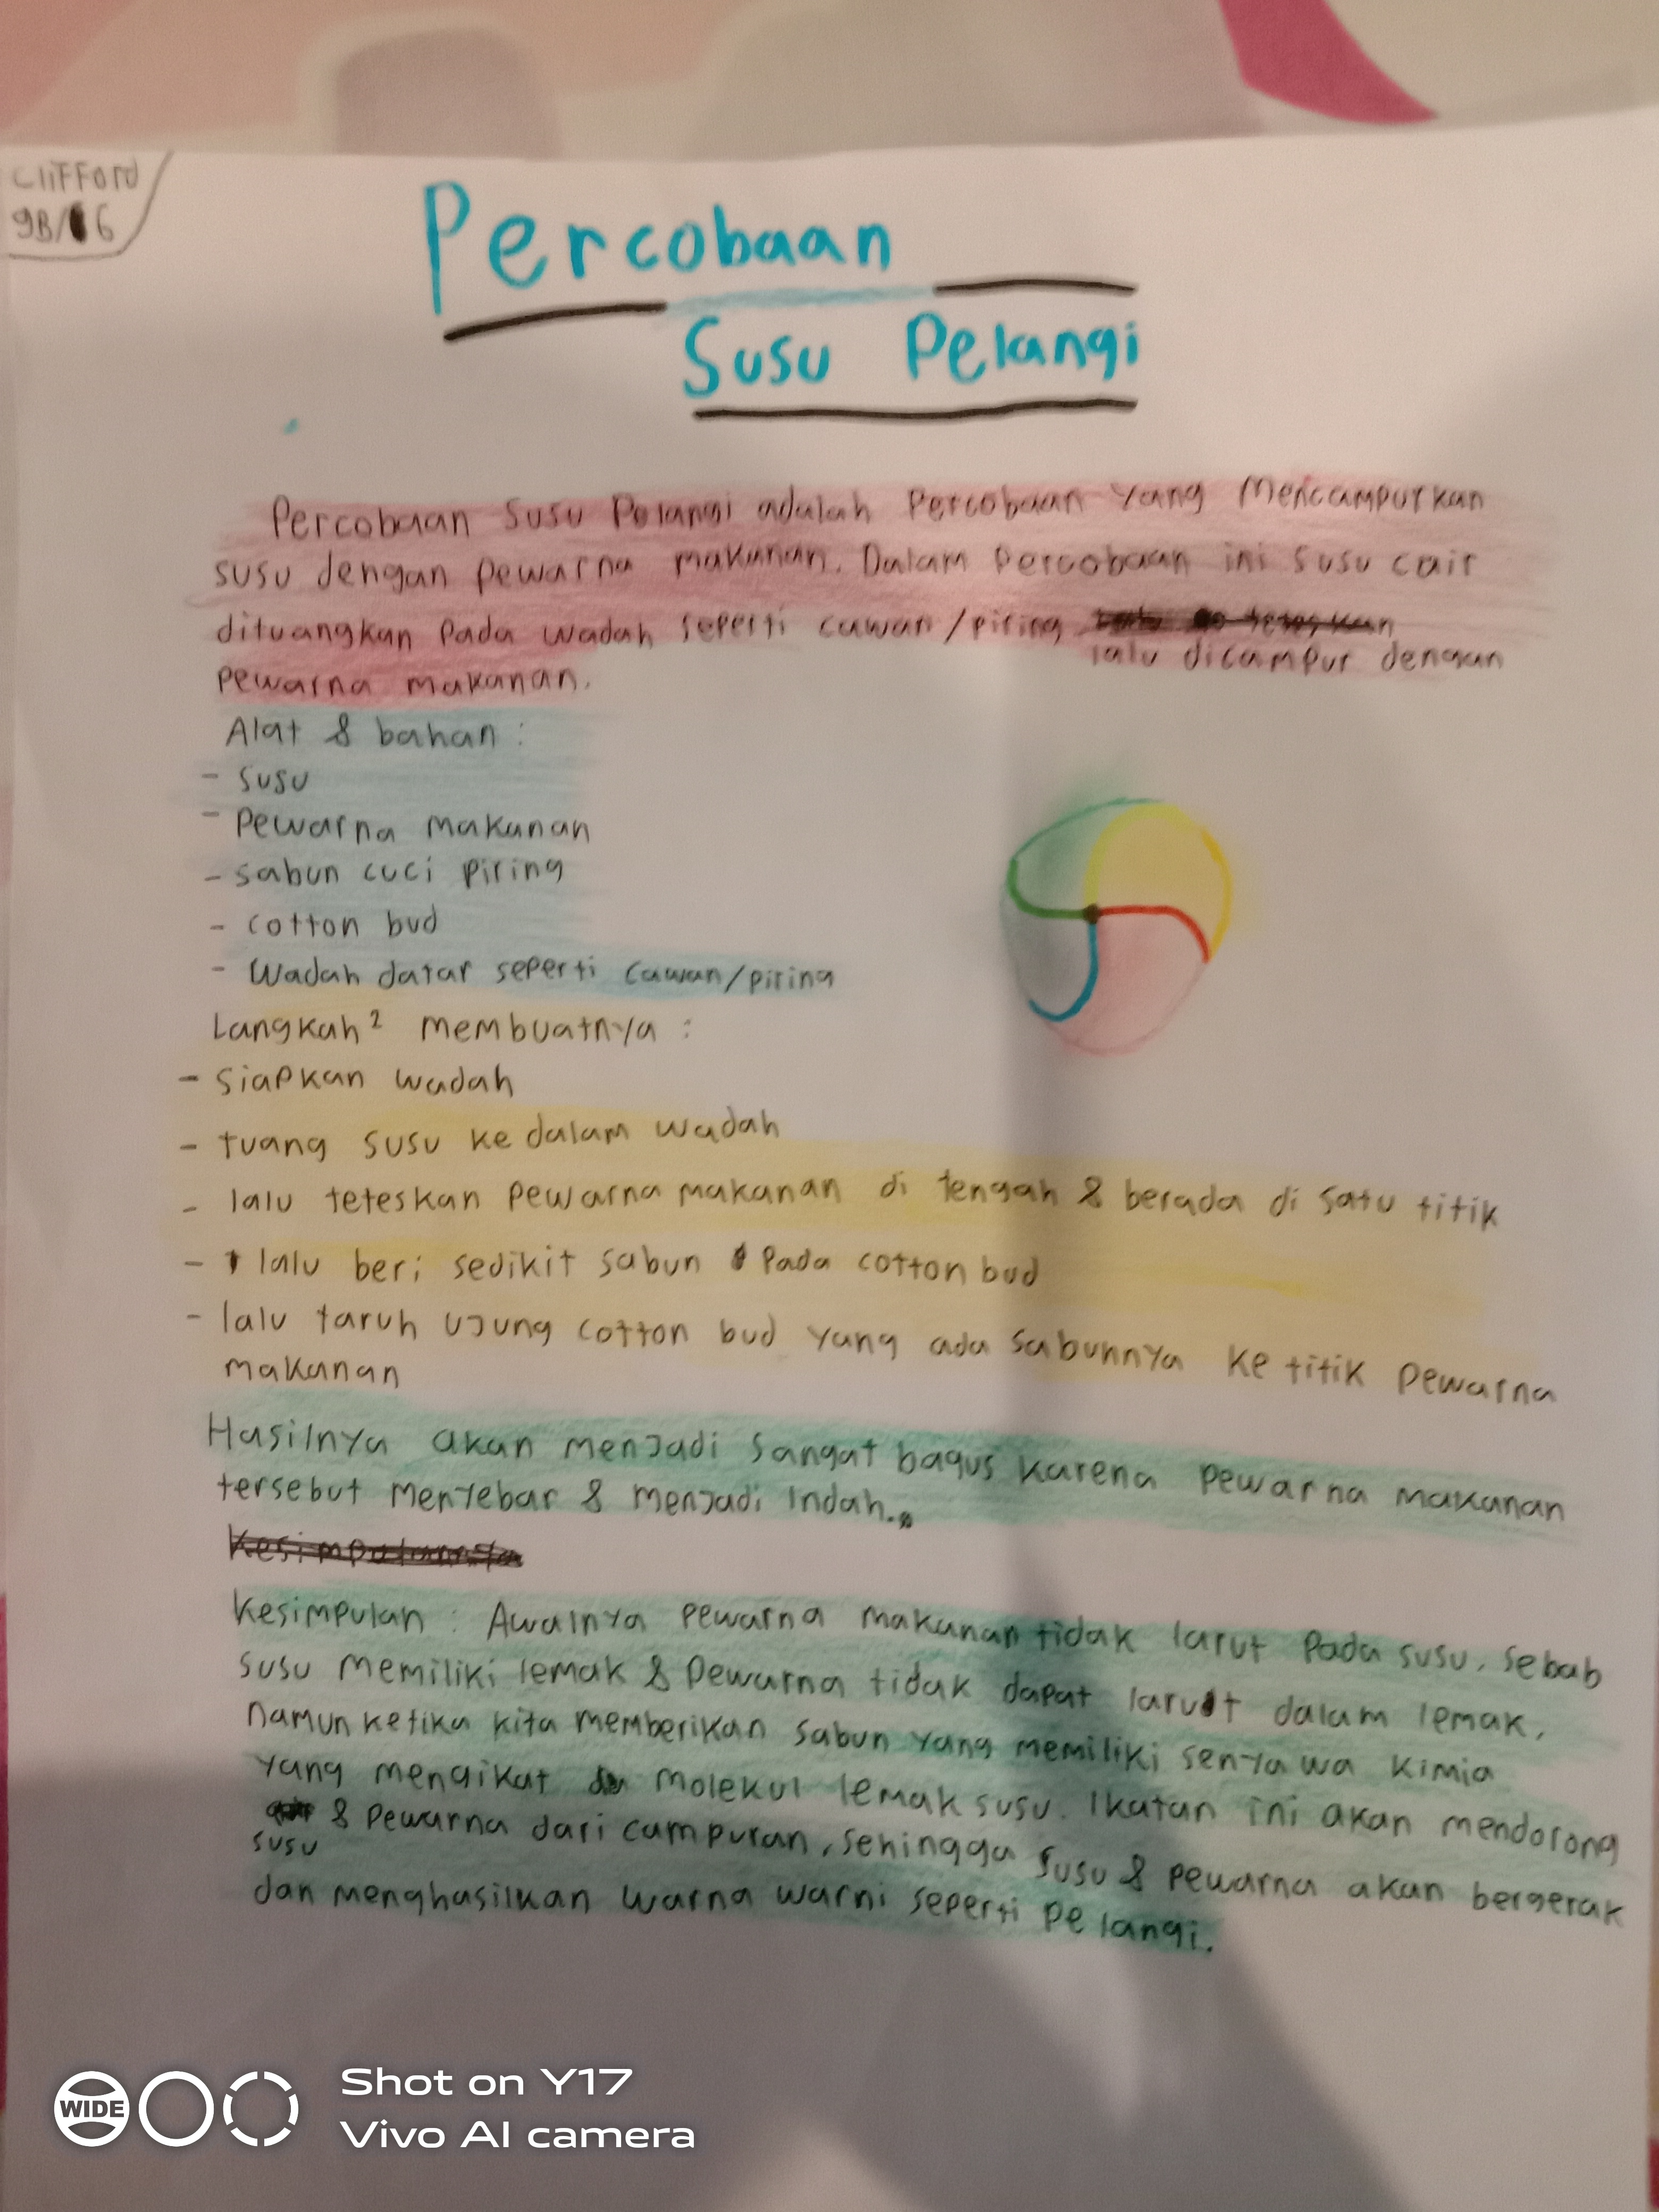 Clifford
9B/6
Percobaan
Susu Pelangi
Percobaan Susu Pelangi adalah Percobaan yang Mencampurkan
susu dengan pewarna makanan. Dalam Percobaan ini susu cair
dituangkan pada wadah seperti cawan/piring teteskan
lalu dicampur dengan
pewarna makanan.
Alat & bahan :
- susu
- Pewarna makanan
- sabun cuci piring
- cotton bud
- Wadah datar seperti cawan/piring
Langkah² membuatnya :
- siapkan wadah
- tuang susu ke dalam wadah
- lalu teteskan pewarna makanan di tengah & berada di satu titik
- lalu beri sedikit sabun pada cotton bud
- lalu taruh ujung cotton bud yang ada sabunnya ke titik pewarna
makanan
Hasilnya akan menjadi sangat bagus karena pewarna makanan
tersebut menyebar & menjadi indah.
Kesimpulannya
Kesimpulan : Awalnya pewarna makanan tidak larut pada susu, sebab
susu memiliki lemak & pewarna tidak dapat larut dalam lemak,
namun ketika kita memberikan sabun yang memiliki senyawa kimia
yang mengikat molekul lemak susu. Ikatan ini akan mendorong
& pewarna dari campuran, sehingga susu & pewarna akan bergerak
susu
dan menghasilkan warna warni seperti pelangi.
WIDE
Shot on Y17
Vivo AI camera